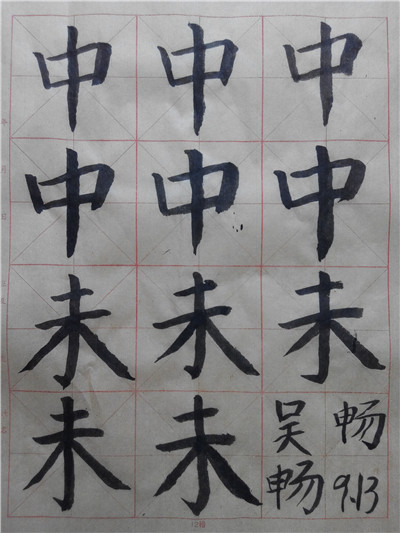 中中中
中中中
未未未
未未吴畅
畅9.13